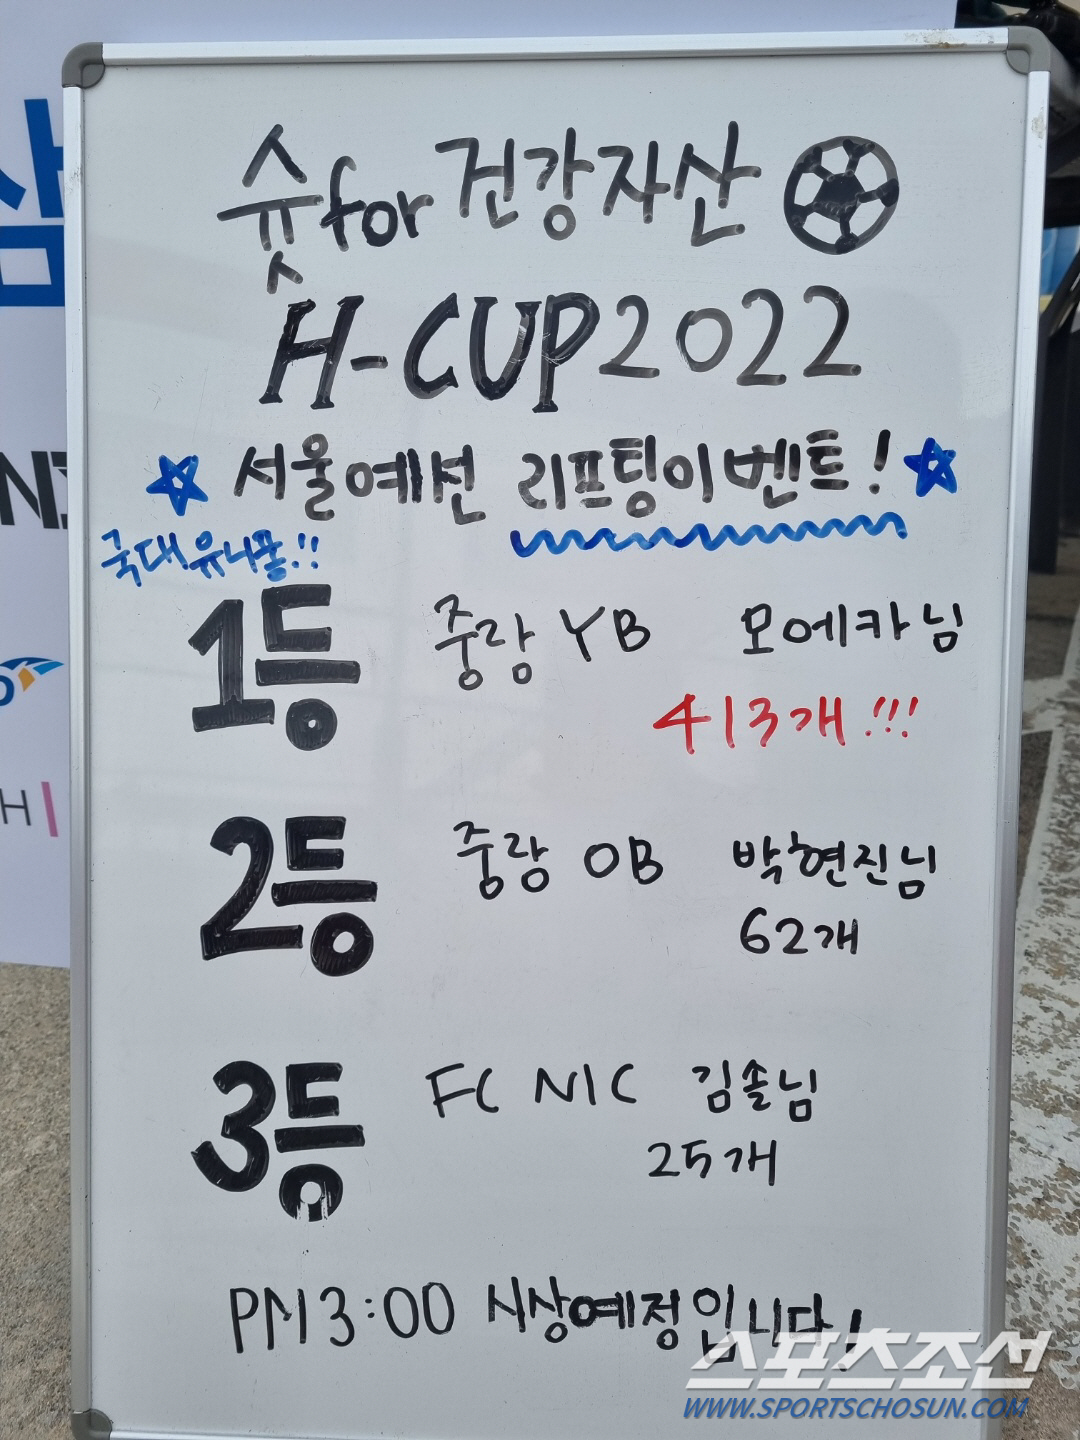 슛for건강자산
H-CUP2022
서울예선 리프팅이벤트!
국대유니폼!!
1등 중랑 YB 모에카님
413개!!!
2등 중랑 OB 박현진님
62개
3등 FC NIC 김솔님
25개
PM3:00 시상예정입니다!
스포츠조선
WWW.SPORTSCHOSUN.COM